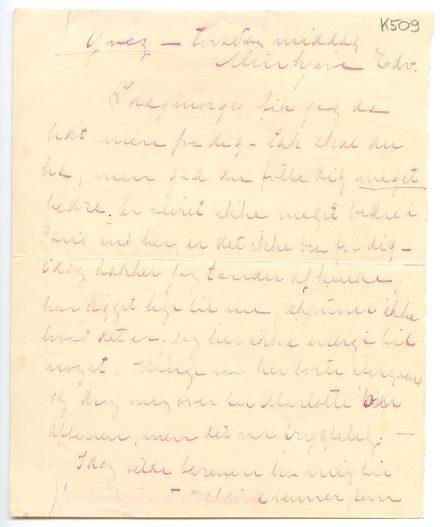 K509
Grez – torsdag middag
Min kjære Edv.
I dag morges fik jeg da
lidt mere fra dig – tak skal du
ha, men gid du følte dig meget
bedre. Er veiret ikke meget bedre i
Paris end her, er det ikke bra for dig –
idag hakker jeg tænder af kulde,
har ligget lige til nu, skjønner ikke
hvad det er. jeg har ikke energi til
noget. var her borte igaar
og drog meg over til Charlotte
aftenen, men det var frygtelig. –
Idag vilde ha mig til
venner som